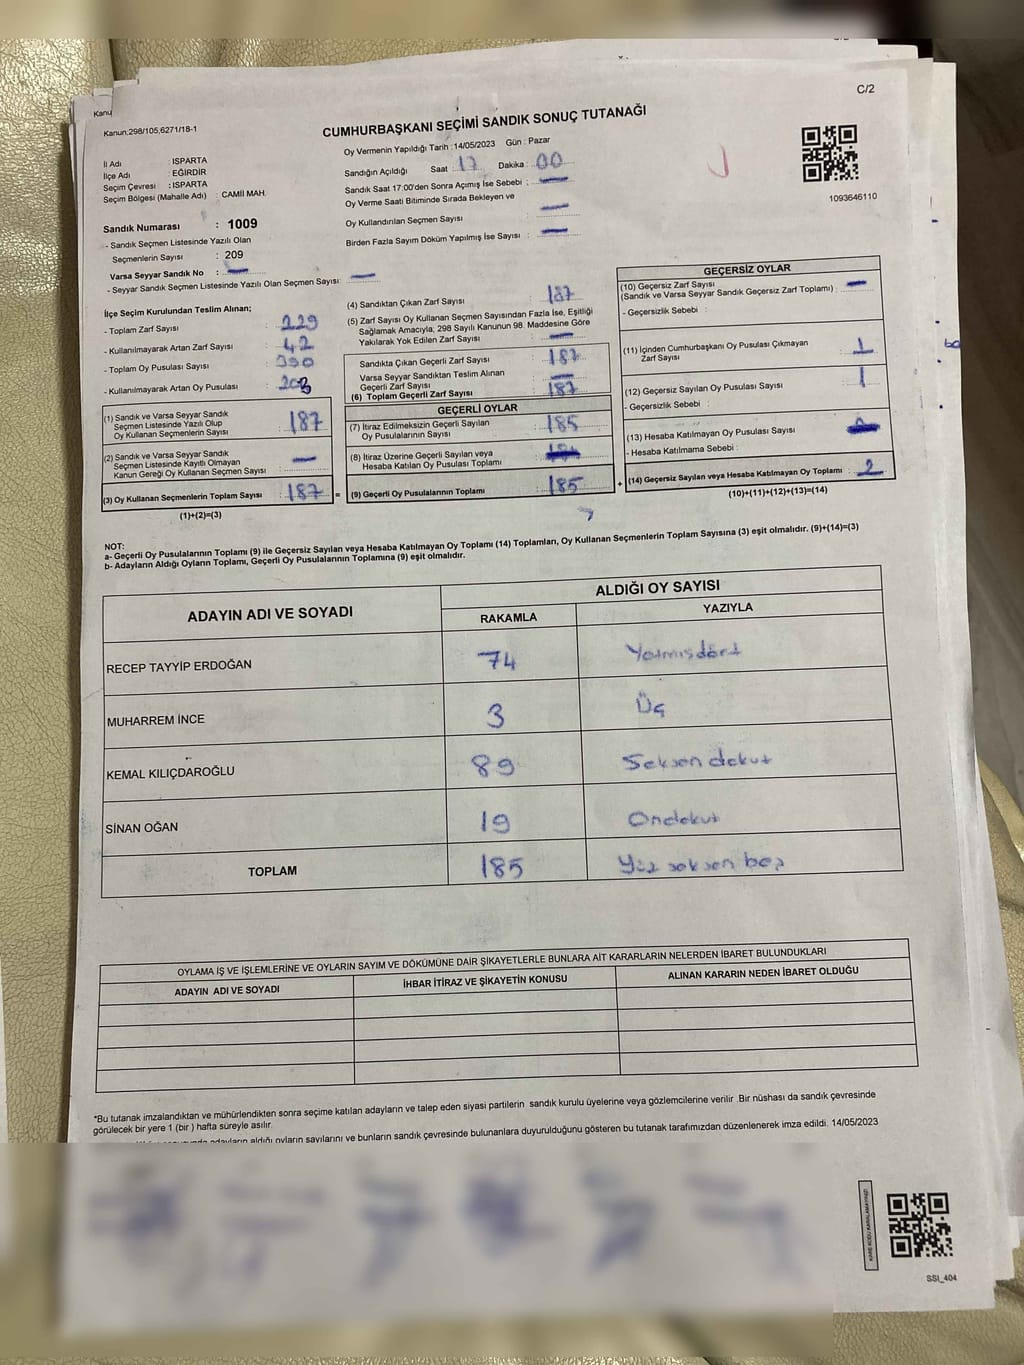 Kanu
C/2
Kanun;298/105,6271/18-1
CUMHURBAŞKANI SEÇİMİ SANDIK SONUÇ TUTANAĞI
Oy Vermenin Yapıldığı Tarih : 14/05/2023 Gün : Pazar
İl Adı : ISPARTA
İlçe Adı : EĞİRDİR
Seçim Çevresi : ISPARTA
Seçim Bölgesi (Mahalle Adı) : CAMİİ MAH.
Sandığın Açıldığı Saat : 17 Dakika : 00
Sandık Saat 17:00'den Sonra Açımış İse Sebebi :
Oy Verme Saati Bitiminde Sırada Bekleyen ve
Oy Kullandırılan Seçmen Sayısı
Birden Fazla Sayım Döküm Yapılmış İse Sayısı :
1093646110
Sandık Numarası : 1009
- Sandık Seçmen Listesinde Yazılı Olan
Seçmenlerin Sayısı : 209
Varsa Seyyar Sandık No :
- Seyyar Sandık Seçmen Listesinde Yazılı Olan Seçmen Sayısı:
İlçe Seçim Kurulundan Teslim Alınan;
- Toplam Zarf Sayısı : 229
- Kullanılmayarak Artan Zarf Sayısı : 42
- Toplam Oy Pusulası Sayısı : 390
- Kullanılmayarak Artan Oy Pusulası : 203
(1) Sandık ve Varsa Seyyar Sandık
Seçmen Listesinde Yazılı Olup
Oy Kullanan Seçmenlerin Sayısı : 187
(2) Sandık ve Varsa Seyyar Sandık
Seçmen Listesinde Kayıtlı Olmayan
Kanun Gereği Oy Kullanan Seçmen Sayısı
(3) Oy Kullanan Seçmenlerin Toplam Sayısı : 187 =
(1)+(2)=(3)
(4) Sandıktan Çıkan Zarf Sayısı : 187
(5) Zarf Sayısı Oy Kullanan Seçmen Sayısından Fazla İse, Eşitliği
Sağlamak Amacıyla, 298 Sayılı Kanunun 98. Maddesine Göre
Yakılarak Yok Edilen Zarf Sayısı :
Sandıkta Çıkan Geçerli Zarf Sayısı : 187
Varsa Seyyar Sandıktan Teslim Alınan
Geçerli Zarf Sayısı
(6) Toplam Geçerli Zarf Sayısı : 187
GEÇERLİ OYLAR
(7) İtiraz Edilmeksizin Geçerli Sayılan
Oy Pusulalarının Sayısı : 185
(8) İtiraz Üzerine Geçerli Sayılan veya
Hesaba Katılan Oy Pusulası Toplamı :
(9) Geçerli Oy Pusulalarının Toplamı : 185 +
GEÇERSİZ OYLAR
(10) Geçersiz Zarf Sayısı
(Sandık ve Varsa Seyyar Sandık Geçersiz Zarf Toplamı) :
- Geçersizlik Sebebi :
(11) İçinden Cumhurbaşkanı Oy Pusulası Çıkmayan
Zarf Sayısı : 1
(12) Geçersiz Sayılan Oy Pusulası Sayısı : 1
- Geçersizlik Sebebi :
(13) Hesaba Katılmayan Oy Pusulası Sayısı :
- Hesaba Katılmama Sebebi :
(14) Geçersiz Sayılan veya Hesaba Katılmayan Oy Toplamı : 2
(10)+(11)+(12)+(13)=(14)
NOT:
a- Geçerli Oy Pusulalarının Toplamı (9) ile Geçersiz Sayılan veya Hesaba Katılmayan Oy Toplamı (14) Toplamları, Oy Kullanan Seçmenlerin Toplam Sayısına (3) eşit olmalıdır. (9)+(14)=(3)
b- Adayların Aldığı Oyların Toplamı, Geçerli Oy Pusulalarının Toplamına (9) eşit olmalıdır.
ADAYIN ADI VE SOYADI ALDIĞI OY SAYISI
RAKAMLA YAZIYLA
RECEP TAYYİP ERDOĞAN 74 Yetmişdört
MUHARREM İNCE 3 Üç
KEMAL KILIÇDAROĞLU 89 Seksen dokuz
SİNAN OĞAN 19 Ondokuz
TOPLAM 185 Yüz seksen beş
OYLAMA İŞ VE İŞLEMLERİNE VE OYLARIN SAYIM VE DÖKÜMÜNE DAİR ŞİKAYETLERLE BUNLARA AİT KARARLARIN NELERDEN İBARET BULUNDUKLARI
ADAYIN ADI VE SOYADI İHBAR İTİRAZ VE ŞİKAYETİN KONUSU ALINAN KARARIN NEDEN İBARET OLDUĞU
*Bu tutanak imzalandıktan ve mühürlendikten sonra seçime katılan adayların ve talep eden siyasi partilerin sandık kurulu üyelerine veya gözlemcilerine verilir .Bir nüshası da sandık çevresinde
görülecek bir yere 1 (bir ) hafta süreyle asılır.
adayların aldığı oyların sayılarını ve bunların sandık çevresinde bulunanlara duyurulduğunu gösteren bu tutanak tarafımızdan düzenlenerek imza edildi. 14/05/2023
SSI_404